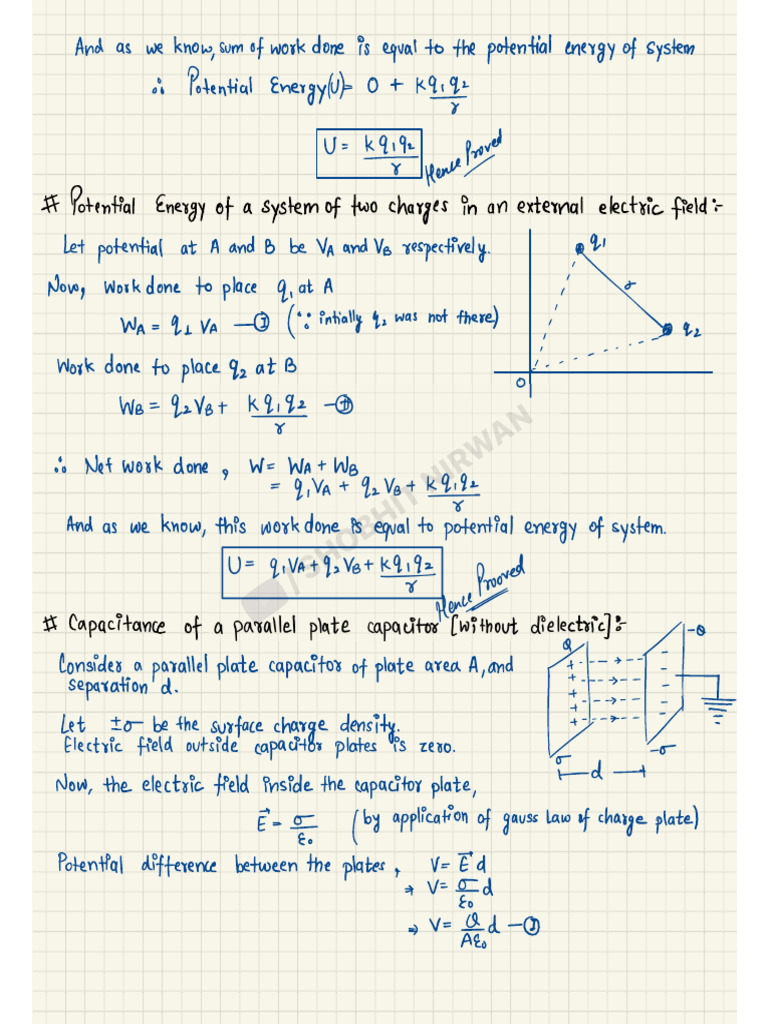 And as we know, sum of work done is equal to the potential energy of system
∴ Potential Energy(U)= 0 + kq1q2/r
U = kq1q2/r
Hence Proved
# Potential Energy of a system of two charges in an external electric field:-
Let potential at A and B be VA and VB respectively.
Now, Work done to place q1 at A
WA = q1 VA —(I) (∵ intially q2 was not there)
Work done to place q2 at B
WB = q2VB + kq1q2/r —(II)
q1
r
q2
O
∴ Net work done, W= WA + WB
= q1VA + q2VB + kq1q2/r
And as we know, this work done is equal to potential energy of system.
U = q1VA + q2VB + kq1q2/r
Hence Prooved
/SHOBHIT NIRWAN
# Capacitance of a parallel plate capacitor [without dielectric]:-
Consider a parallel plate capacitor of plate area A, and
separation d.
Let ±σ be the surface charge density.
Electric field outside capacitor plates is zero.
Q
-Q
+ + + + +
- - - - -
σ
-σ
d
Now, the electric field inside the capacitor plate,
E⃗ = σ/ε0 (by application of gauss law of charge plate)
Potential difference between the plates, V= E⃗ d
→ V= σ/ε0 d
⇒ V= Q/Aε0 d —(I)